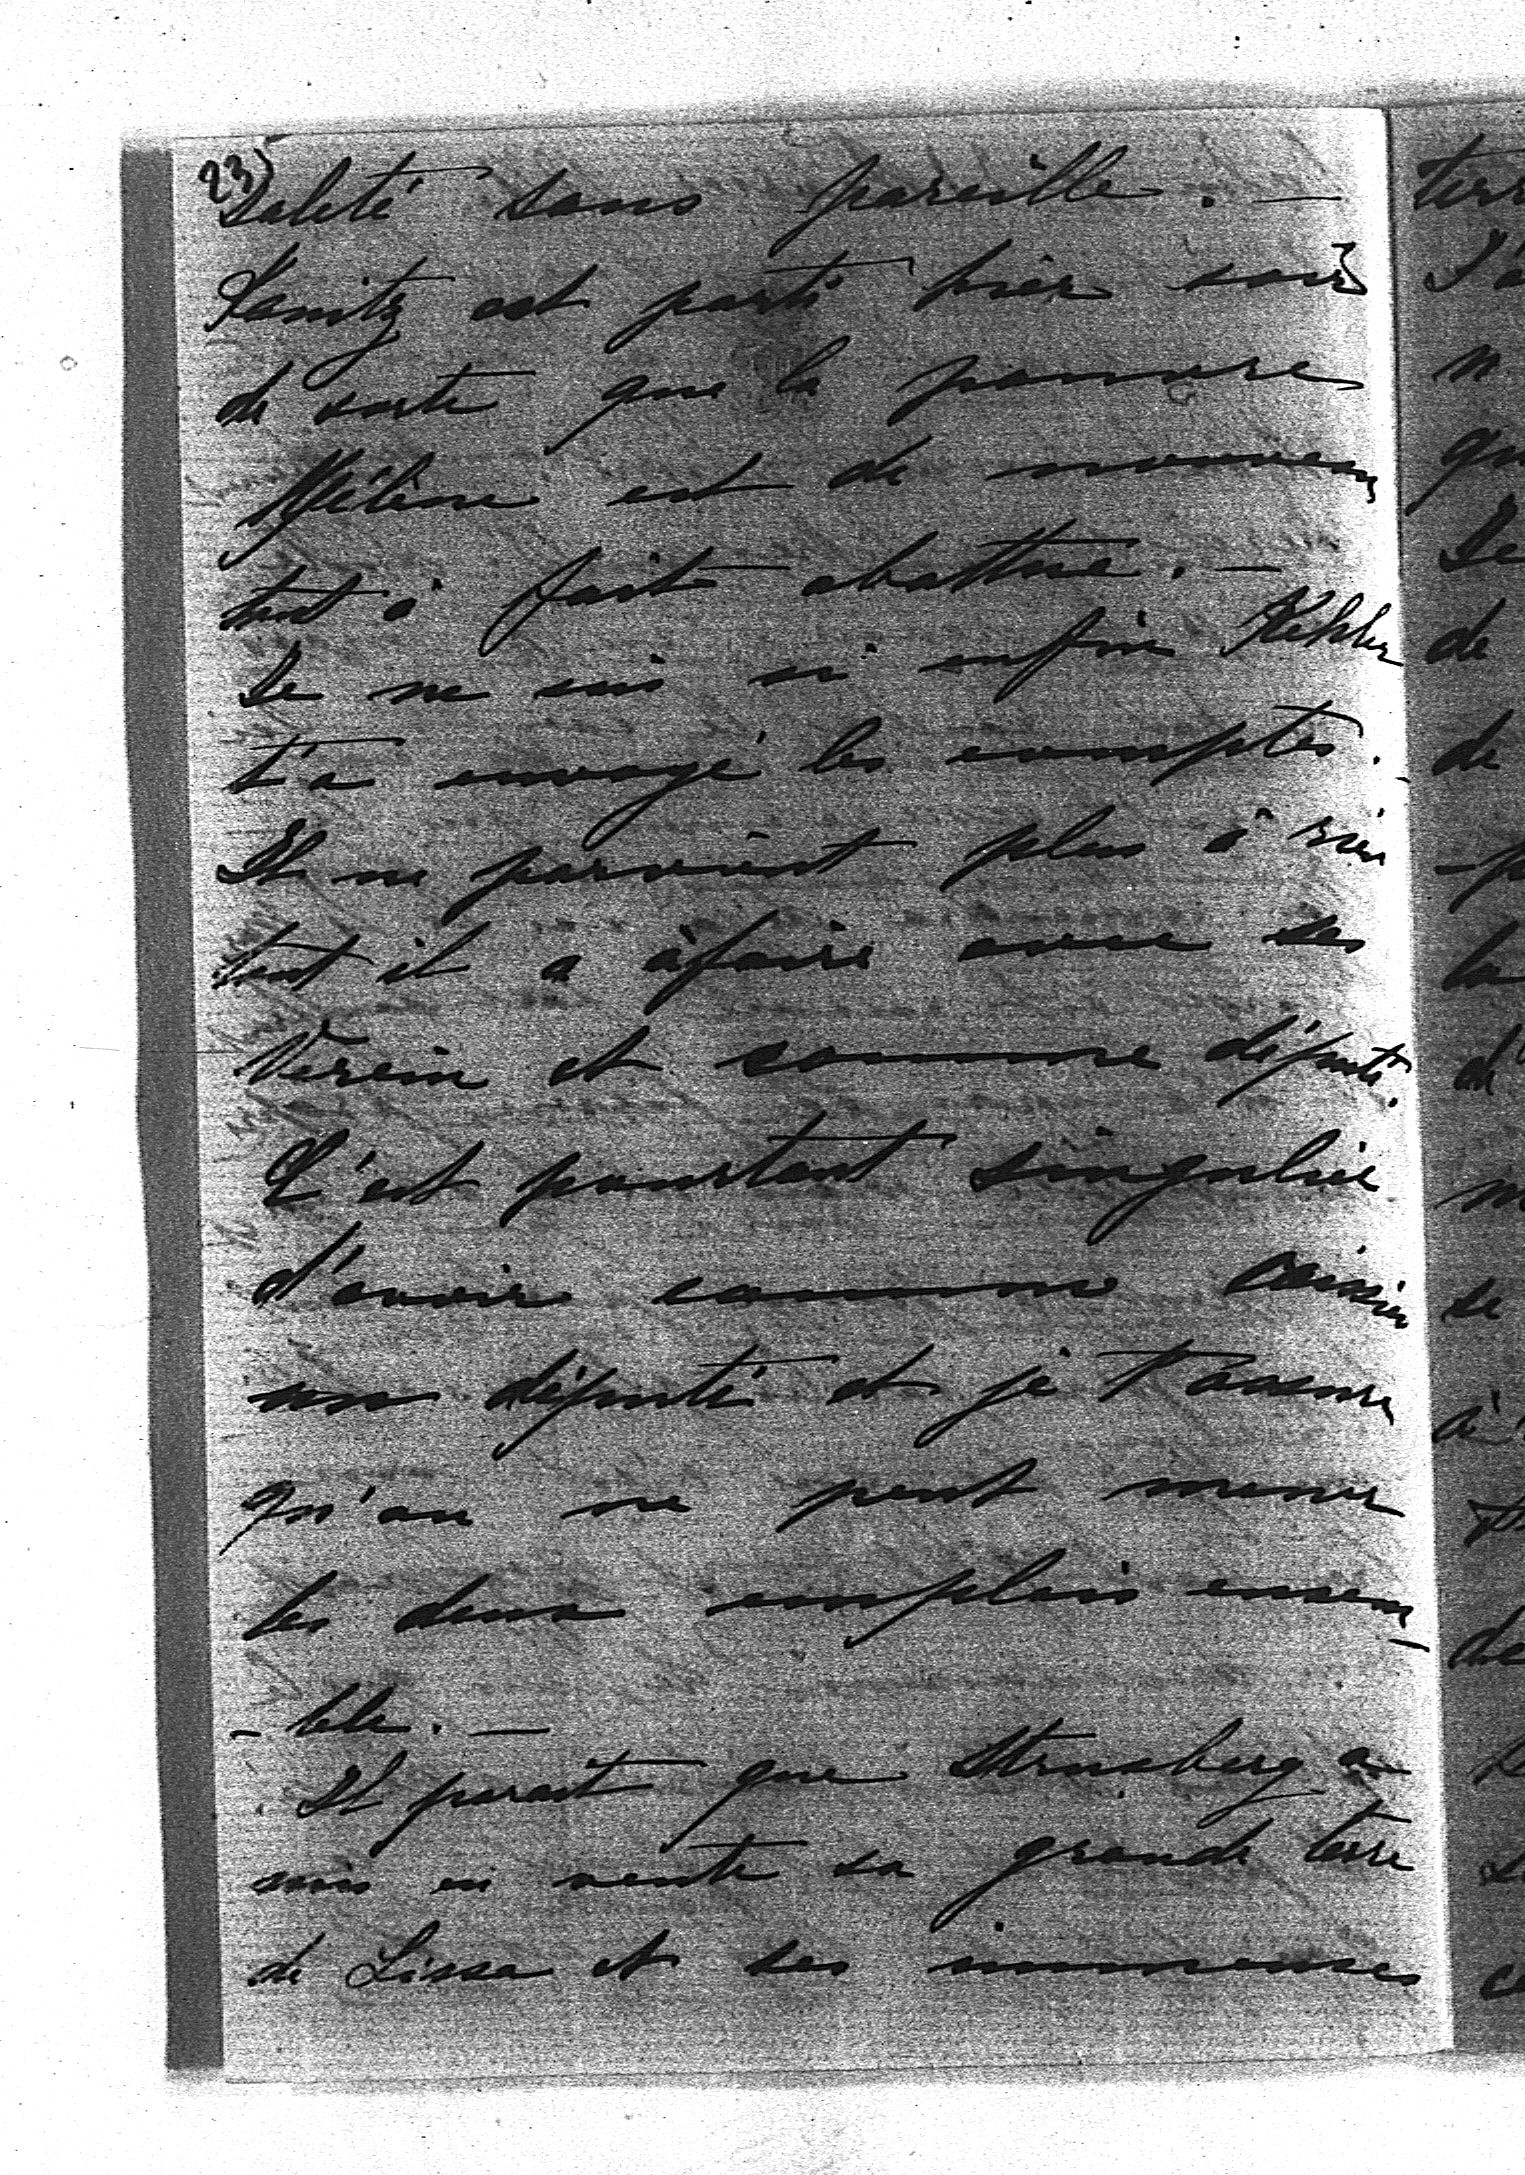 23)
saleté sans pareille. —
Kanitz est parti hier soir
de sorte que la pauvre
Hélène est de nouveau
tout à fait abattue. —
Je ne sais si enfin Kehler
t'a envoyé les comptes. —
Il ne parvient plus à rien
tant il a àfaire avec ses
Verein et comme député.
C'est pourtant singulier
d'avoir comme caissier
un député et je t'assure
qu'on ne peut mener
les deux emplois ensem-
-ble. —
Il parait que Strusberg a
mis en vente sa grande terre
de Lissa et ses immenses